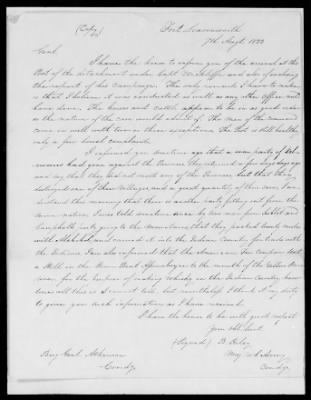 (Copy)
Fort Leavenworth
7th Augt. 1833
Genl.
I have the honor to inform you of the arrival at this
Post of the detachment under Capt.
the report of his Campaign. The only remark I have to make
is that I believe it was conducted as well as any other Officer could
have done. The horses and cattle appear to be in as good order
as the nature of the case would admit of. The men of the command
came in well with two or three exceptions. The Post is still healthy
only a few local complaints.
I informed you sometime ago that a war party of Del-
awares had gone against the Pawnees they returned a few days ago
and say that they did not meet any of the Pawnees, but that they
destroyed one of their Villages and a great quantity of their corn, I un-
derstand this morning that there is another party fitting out from the
same nation. I was told sometime since by two men from Sublet and
Campbell's party going to the Mountains, that they packed twenty mules
with Alcohol, and carried it into the Indian Country for trade with
the Natives. I am also informed that the American Fur Company took
a Still in the Steam Boat up to the mouth of the Yellow Stone
river, for the purpose of making whisky in the Indian Country, how
true all this is I cannot tell, but nevertheless I think it my duty
to give you such information as I have received.
I have the honor to be with great respect
Your Obt. Servt.
(Signed) B. Riley
Maj. U.S. Army
Comdg.
Brig Genl. Atkinson
Comdg.